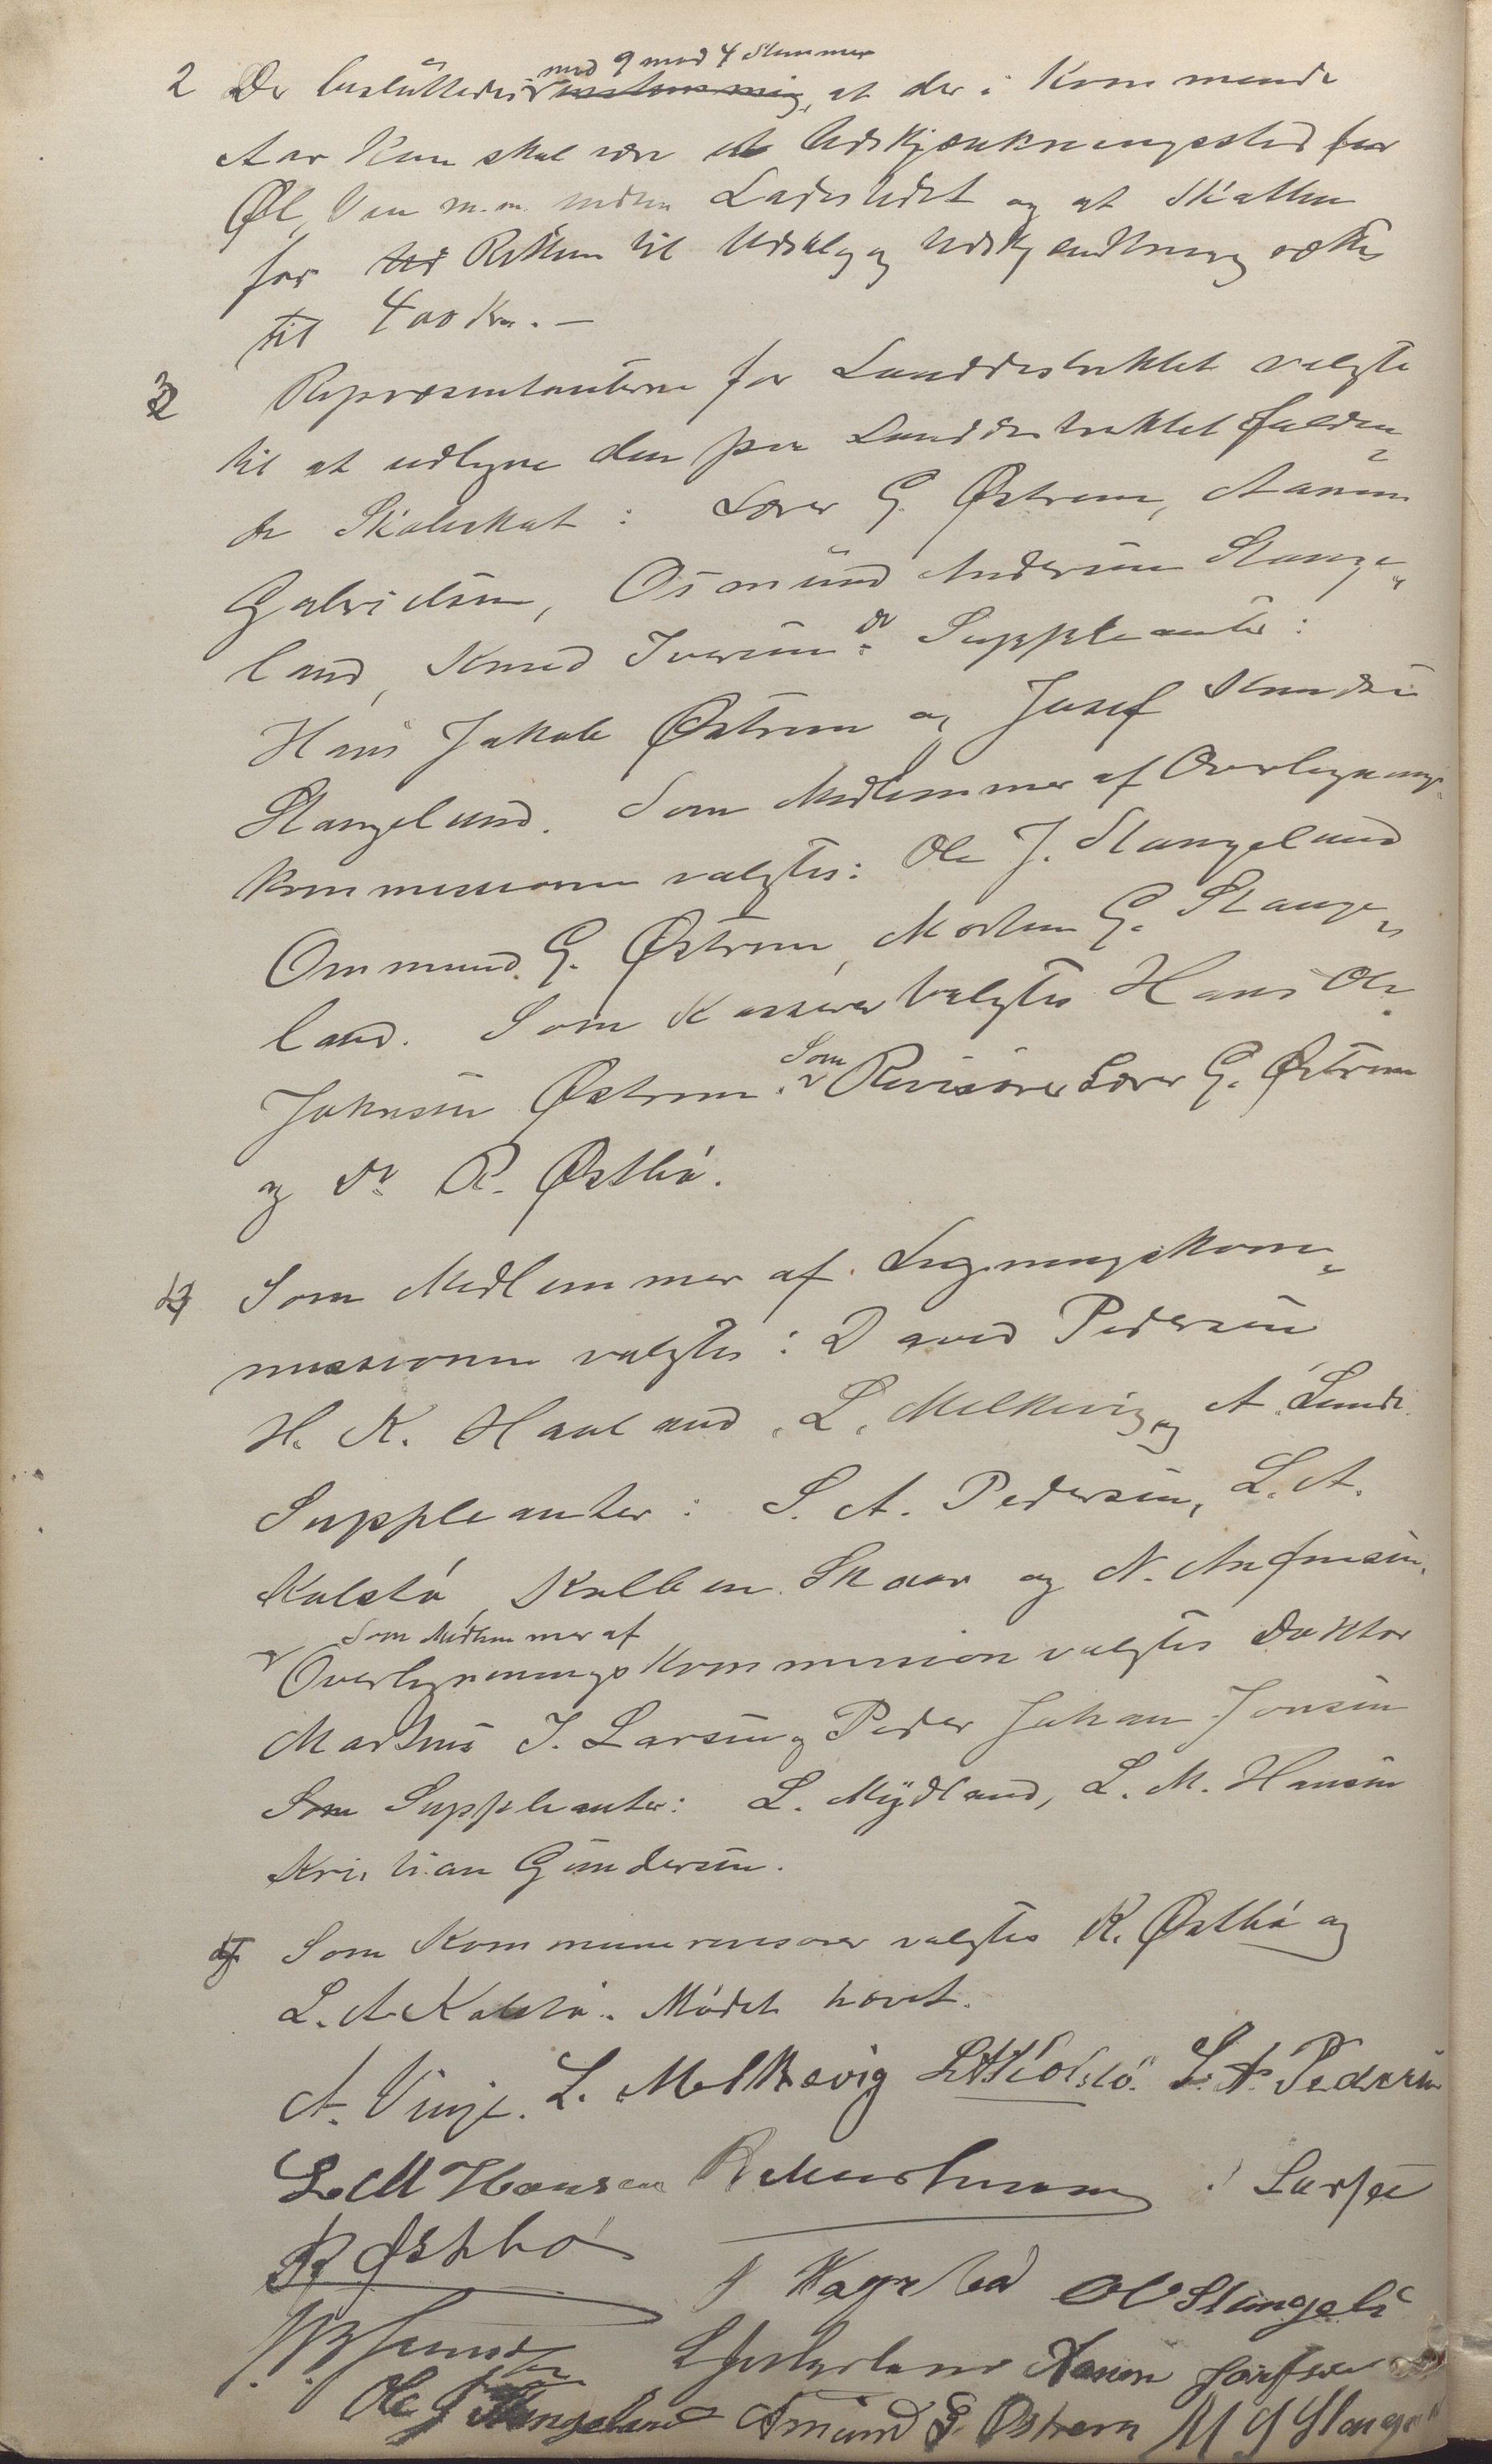 med 9 mod 4 Stemmer
2 De besluttedes enstemmig, at der i Kommende
Aar Kun skal være et Udskjænkningssted for
Øl, Vin m.m. inden Ladestedet og at Skatten
for Retten til Udsalg og Udskjænkning sættes
til 400 Kr. –
3 Repræsentanterne for Landdistriktet valgte
til at udligne den paa Landdistriktet falden„
de Skoleskat: Lærer G. Østrem, Aanen
Gabrielsen, Osmund Andersen Stange„
land, Knud Iversen do. Suppleanter:
Hans Jakob Østrem og Josef Knudsen
Stangeland. Som Medlemmer af Overlignings„
kommissionen valgtes: Ole J. Stangeland
Ommund G. Østrem, Morten G. Stange„
land. Som Kasserer valgtes Hans Ole
Johnsen Østrem. Som Revisorer Lærer G. Østrem
og Dr. R. Østbø.
4 Som Medlemmer af Ligningskom„
missionen valgtes: David Pedersen
H. K. Hauland, L. Melkevig og A. Lunde.
Suppleanter: S. A. Pedersen, L. A.
Kolstø, Kolben Skaar og N. Anfinsen.
Som Medlemmer af
Overligningskommission valgtes Doktor
Markus I. Larsen og Peder Johan Jonsen
Som Suppleanter: L. Mydland, L. M. Hansen
Kristian Gundersen.
Som Kommunerevisorer valgtes R. Østbø og
L. A. Kolstø. Mødet hævet.
A. Vinje. L. Melkevig L A Kolstø. S. A. Pedersen
L. M Hansen Larsen
R Østbø Vaage O V Stangel
Aanen
Ole J Stangeland Amund G. Østrem M G Stangeland